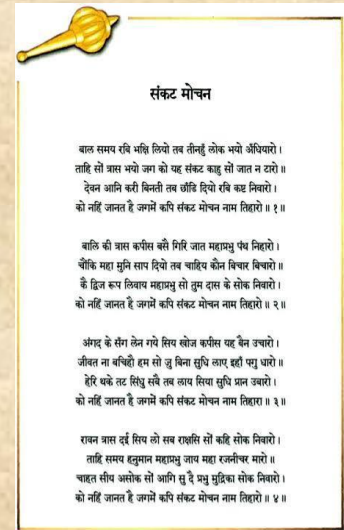 संकट मोचन
बाल समय रबि भक्षि लियो तब तीनहुँ लोक भयो अँधियारो ।
ताहि सों त्रास भयो जग को यह संकट काहु सों जात न टारो ॥
देवन आनि करी बिनती तब छाँडि दियो रबि कष्ट निवारो ।
को नहिं जानत है जगमें कपि संकट मोचन नाम तिहारो ॥ १ ॥
बालि की त्रास कपीस बसै गिरि जात महाप्रभु पंथ निहारो ।
चौंकि महा मुनि साप दियो तब चाहिय कौन बिचार बिचारो ॥
कै द्विज रूप लिवाय महाप्रभु सो तुम दास के सोक निवारो ।
को नहिं जानत है जगमें कपि संकट मोचन नाम तिहारो ॥ २ ॥
अंगद के सँग लेन गये सिय खोज कपीस यह बैन उचारो ।
जीवत ना बचिहौ हम सो जु बिना सुधि लाए इहाँ पगु धारो ॥
हेरि थके तट सिंधु सबै तब लाय सिया सुधि प्रान उबारो ।
को नहिं जानत है जगमें कपि संकट मोचन नाम तिहारा ॥ ३ ॥
रावन त्रास दई सिय लो सब राक्षसि सों कहि सोक निवारो ।
ताहि समय हनुमान महाप्रभु जाय महा रजनीचर मारो ॥
चाहत सीय असोक सों आगि सु दै प्रभु मुद्रिका सोक निवारो ।
को नहिं जानत है जगमें कपि संकट मोचन नाम तिहारो ॥ ४ ॥